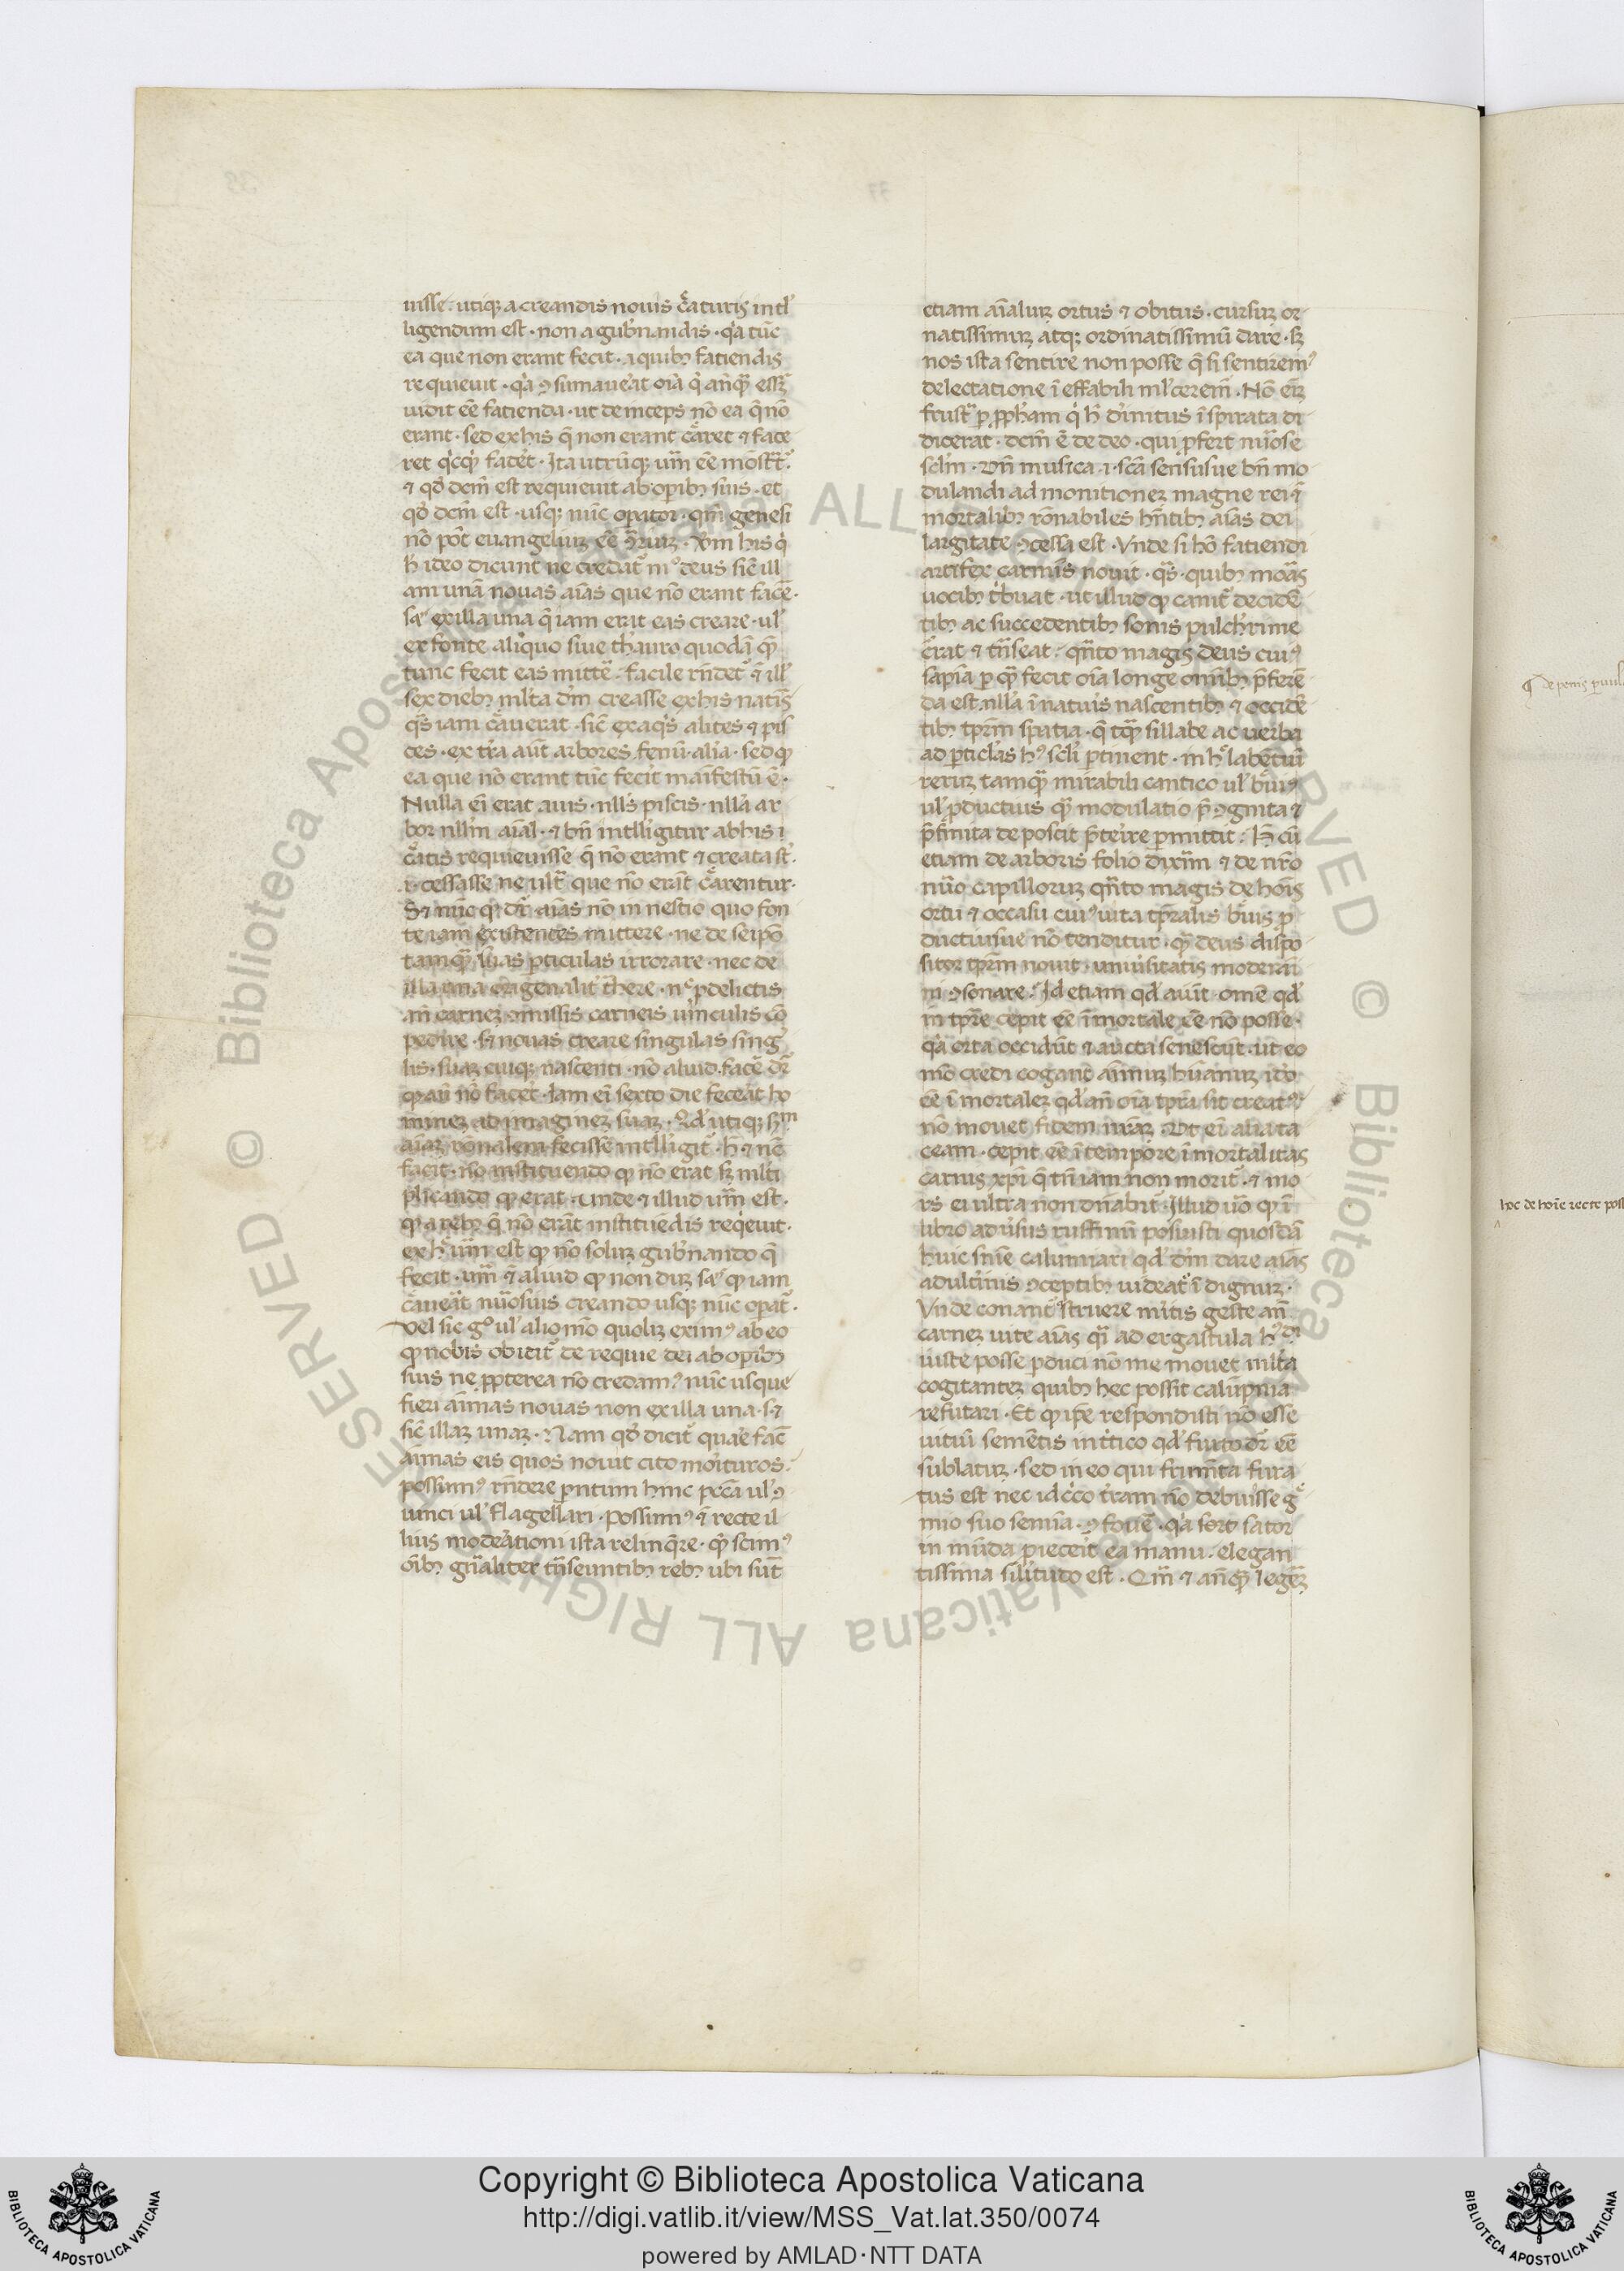 uisse. utiqꝫ a creandis nouis c̃aturis intl̃
ligendum est · non a gub̃nandis · qa tũc
ea que non erant fecit · a quibꝫ fatiendis
requieuit ·
uidit eẽ fatienda · ut deinceps nõ ea q̃ nõ
erant · sed ex his q̃ non erant c̃aret ⁊ face
ret
⁊ qd̃ dcm̃ est requieuit ab opibꝫ suis · et
qd̃ dcm̃ est · usqꝫ nũc opator · qm̃ genesi
nõ põt euangeliuꝫ eẽ
h̃ ideo dicunt ne credat̃ deus sic̃ ill
am unã nouas aĩas que nõ erant facẽ ·
ex illa una q̃ iam erat eas creare · ul̃
ex fonte aliquo siue thauro quodã
tunc fecit eas mitte · facile rñdet̃
sex diebꝫ ml̃ta dm̃ creasse ex his natis
q̃s iam c̃auerat · sic̃ ex aqs alites ⁊ pis
ces · ex tr̃a aut̃ arbores fenũ · alia · sed ꝙ
ea que nõ erant tũc fecit manifestũ ẽ ·
Nulla eĩ erat auis · nll̃s piscis · nll̃a ar
bor nll̃m aĩal · ⁊ bñ intll̃igitur ab his
c̃atis requieuisse q̃ nõ erant ⁊ creata st̃ ·
i· cessasse ne ult̃ que nõ erãt c̃arentur ·
aĩas nõ in nescio quo fon
te iam existentes mittere · ne de seipõ
tamq̃ suas pticulas irrorare · nec de
illa una originalit̃ · pdelictis
carneꝫ cõmissis carneis uinculis cõ
pedire · sꝫ nouas creare singulas sing̃
lis · suaꝫ cuiqꝫ nascenti · nõ aliud face
facet · Iam eĩ sexto die feceat ho
mineꝫ ad imagineꝫ suaꝫ · Qd̃ utiqꝫ
aĩaꝫ rõnalem fecisse intlligit̃ · h̃ ⁊ nc̃
facit · nõ instituendo ꝙ nõ erat sꝫ mlti
plicando ꝙ erat · unde ⁊ illud um̃ est ·
ꝙ a rebꝫ q̃ nõ erãt instituẽdis reqeuit ·
ex h̃ um̃ est ꝙ nõ soluꝫ gub̃nando q̃
fecit · um̃ ⁊ aliud ꝙ non duꝫ ꝙ iam
creando usqꝫ nũc opat̃ ·
Vel sic g̊ ul̃ alio mõ quolꝫ eximꝰ ab eo
ꝙ nobis obicit̃ de requie dei ab opibꝫ
suis ne ppterea nõ credamꝰ nũc usque
fieri aĩmas nouas non ex illa una · sꝫ
sic̃ illaꝫ unaꝫ · Nam qd̃ dicit̃ quare fac̃
aĩmas eis quos nouit cito moituros ·
possumꝰ rñdere pntum hinc pc̃ca ul̃ ꝯ
uinci ul̃ flagellari · possumꝰ ⁊ recte il
lius modeationi ista relinq̃re · q̃ scimꝰ
oĩbꝫ gñaliter tñseuntibꝫ rebꝫ ubi sũt
etiam aĩaliuꝫ ortus ⁊ obitus · cursuꝫ or
natissimuꝫ atqꝫ ordinatissimũ dare · sꝫ
nos ista sentire non posse q̃ si sentiremꝰ
delectatione ĩeffabili ml̃ceremꝰ · Nõ eĩꝫ
frust̃ p pphetam q̃ h̃ diuinitus ĩspirata di
dicerat · dcm̃ ẽ de deo · qui pfert nũose
sclm̃ · Vñ musica · i· scĩa sensusue bñ mo
dulandi ad monitioneꝫ magne rei ⁊
mortalibꝫ rõnabiles hñtibꝫ aĩas dei
largitate ꝯcessa est · Vnde si hõ fatiendi
artifex carmĩs nouit · q̃s · quibꝫ moãs
uocibꝫ t̃buat · ut illud ꝙ canit̃ decidẽ
tibꝫ ac succedentibꝫ sonis pulch̃rime
c̃rat ⁊ tñseat · qñto magis deus cuiꝰ
sapĩa p q̃ fecit oĩa longe omĩbꝫ p̃ferẽ
da est nll̃a ĩ natuis nascentibꝫ ⁊ occidẽ
tibꝫ tpm̃ spatia · q̃ tq̃ sillabe ac uerba
ad pticl̃as hꝰ scl̃i ptinent · in h̃ labẽtiũ
reruꝫ tamq̃ mirabili cantico ul̃ b̃uiꝰ
ul̃ pductius q̃ modulatio p̃ꝯgnita ⁊
p̃finita deposcit p̃teire pmittit · H̃ cũ
etiam de arboris folio dixim̃ ⁊ de nr̃o
nũo capilloruꝫ qñto magis de hoĩs
ortu ⁊ occasu cuiꝰ uita tp̃ralis b̃uis p
ductiusue nõ tenditur · q̃ deus dispo
sitor tpm̃ nouit · uniũsitatis moderam̃
in ꝯsonare · Id etiam qd̃ aiũt · omẽ qd̃
in tp̃re cepit eẽ ĩmortale eẽ nõ posse ·
qa orta occidũt ⁊ aucta senescũt · ut eo
mõ credi cogant aĩmuꝫ humanuꝫ ido
eẽ ĩmortaleꝫ qd̃ añ oĩa tp̃ra sit creatꝰ
nõ mouet fidem nr̃aꝫ · Vt eĩ alia ta
ceam · cepit eẽ ĩ tempore ĩmortalitas
carnis xp̃i q̃ tñ iam non morit̃ · ⁊ mo
rs ei ultra non dñabit̃ · Illud uõ ꝙ ĩ
libro adũsus ruffinũ posuisti quosdã
huic snĩe caluniari qd̃ dm̃ dare aĩas
adult̃inis ꝯceptibꝫ uideat̃ ĩdignuꝫ ·
Vnde conant̃ struere m̃itis geste añ
carneꝫ uite aĩas q̃i ad ergastula hꝰ
iuste posse pduci nõ me mouet ml̃ta
cogitanteꝫ quibꝫ hec possit calũpnia
refutari · Et ꝙ ipẽ respondisti nõ esse
uitiũ semẽtis in tritico qd̃ furto dr̃ eẽ
sublatuꝫ · sed in eo qui frumẽta fura
tus est nec idcc̃o tr̃am nõ debuisse g̃
mio suo semĩa · ꝯfouẽ · qa sord̃ sator
in mũda pieceit ea manu · elegan
tissima silitudo est · Qm̃ ⁊ añq̃ legeꝫ
hoc de hoĩe recte poss
Copyright © Biblioteca Apostolica Vaticana
http://digi.vatlib.it/view/MSS_Vat.lat.350/0074
powered by AMLAD·NTT DATA
BIBLIOTECA APOSTOLICA VATICANA
BIBLIOTECA APOSTOLICA VATICANA
© Biblioteca Apostolica Vaticana ALL RIGHTS RESERVED